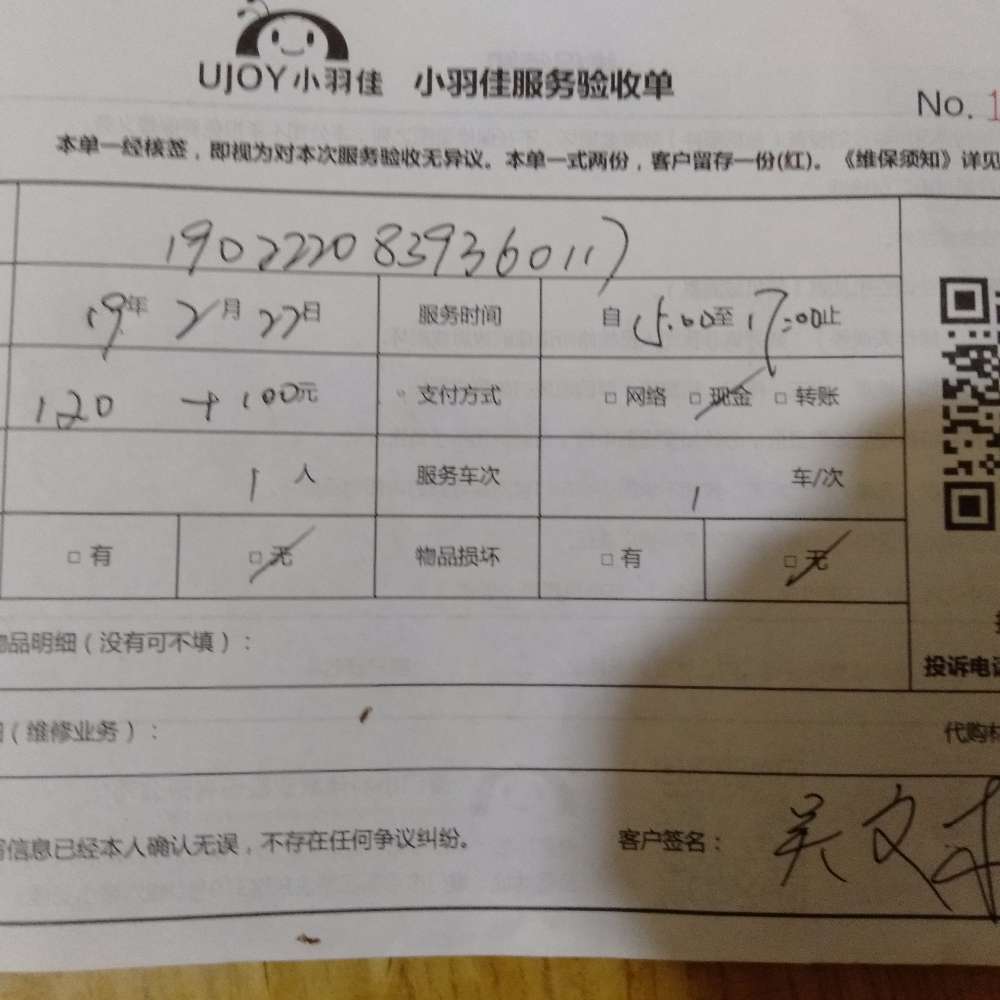 UJOY小羽佳 小羽佳服务验收单
No. 1
本单一经核签，即视为对本次服务验收无异议。本单一式两份，客户留存一份(红)。《维保须知》详见
190222083936017
19年 2月 22日 服务时间 自 15:00至 17:00止
120 + 100元 支付方式 □ 网络 □ 现金 □ 转账
1 人 服务车次 1 车/次
□ 有 □ 无 物品损坏 □ 有 □ 无
品明细（没有可不填）：
投诉电
（维修业务）： 代购
信息已经本人确认无误，不存在任何争议纠纷。 客户签名： 吴文